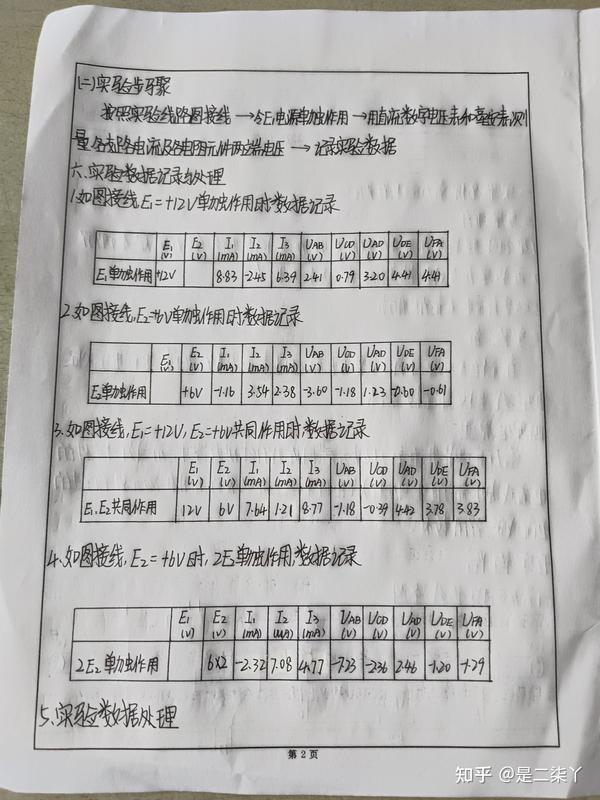 (二)实验步骤
按照实验线路图接线→令E₁电源单独作用→用直流数字电压表和毫安表测
量各支路电流及各电阻元件两端电压→记录实验数据
六、实验数据记录与处理
1.如图接线,E₁=+12V单独作用时数据记录
E₁(V) E₂(V) I₁(mA) I₂(mA) I₃(mA) UAB(V) UCD(V) UAD(V) UDE(V) UFA(V)
E₁单独作用 +12V 8.83 -2.45 6.39 2.41 0.79 3.20 4.41 4.41
2.如图接线,E₂=+6V单独作用时数据记录
E₁(V) E₂(V) I₁(mA) I₂(mA) I₃(mA) UAB(V) UCD(V) UAD(V) UDE(V) UFA(V)
E₂单独作用 +6V -1.16 3.54 2.38 -3.60 -1.18 1.23 -0.60 -0.61
3.如图接线,E₁=+12V,E₂=+6V共同作用时,数据记录
E₁(V) E₂(V) I₁(mA) I₂(mA) I₃(mA) UAB(V) UCD(V) UAD(V) UDE(V) UFA(V)
E₁、E₂共同作用 12V 6V 7.64 1.21 8.77 -1.18 -0.39 4.42 3.78 3.83
4.如图接线,E₂=+6V时,2E₂单独作用,数据记录
E₁(V) E₂(V) I₁(mA) I₂(mA) I₃(mA) UAB(V) UCD(V) UAD(V) UDE(V) UFA(V)
2E₂单独作用 6×2 -2.32 7.08 4.77 -7.23 -2.36 2.46 -1.20 -1.29
5、实验数据处理
第 2 页
知乎 @是二柒丫